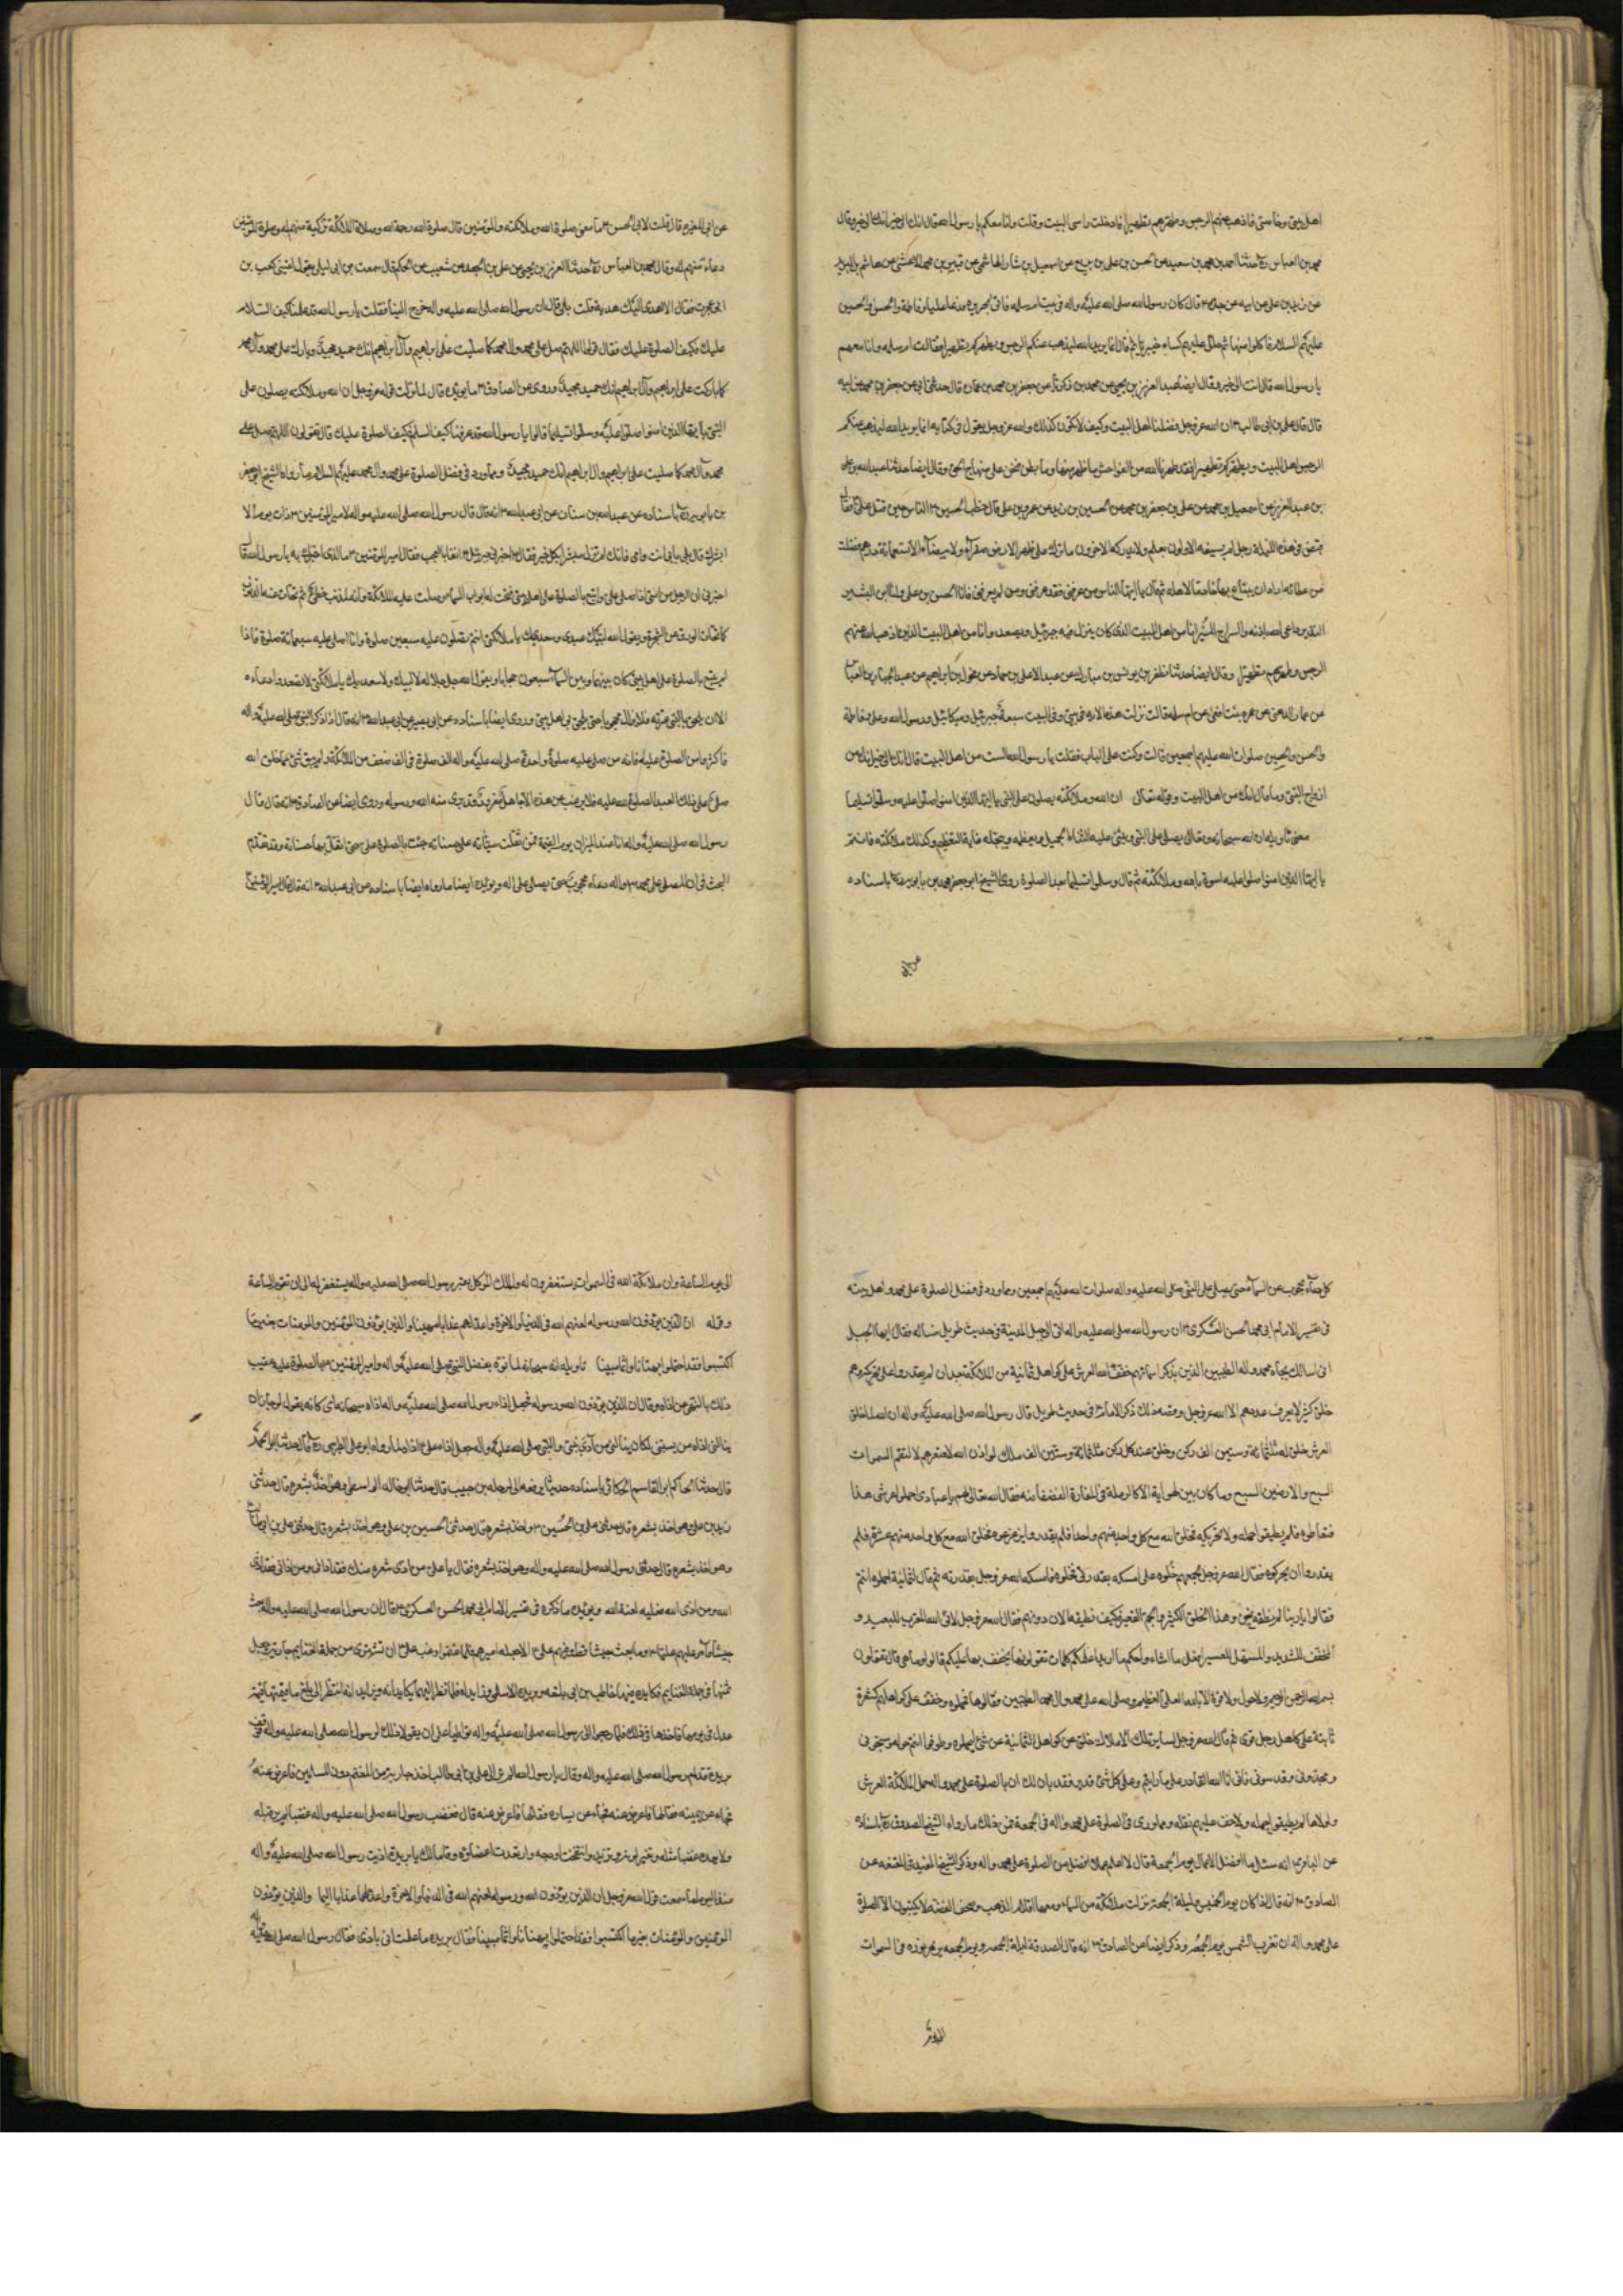 اهل بيتي وخاصتي فاذهب عنهم الرجس وطهرهم تطهيرا فادخلت راسي البيت وقلت وانا معكم يا رسول الله قال انك الى خير انك الى خير وقال
محمد بن العباس ره حدثنا احمد بن محمد بن سعيد عن الحسن بن علي بن بزيع عن اسمعيل بن بشار الهاشمي عن قتيبة بن محمد الاعشى عن هاشم بن البريد
عن زيد بن علي عن ابيه عن جده ع قال كان رسول الله صلى الله عليه واله في بيت ام سلمه فاتى بحريره فدعا عليا وفاطمة والحسن والحسين
عليهم السلام فاكلوا منها ثم جلل عليهم كساء خيبريا ثم قال انما يريد الله ليذهب عنكم الرجس ويطهركم تطهيرا فقالت ام سلمه وانا معهم
يا رسول الله قال انت الى خير وقال ايضا عبد العزيز بن يحيى عن محمد بن زكريا عن جعفر بن محمد بن عماره قال حدثني ابي عن جعفر بن محمد عن ابيه
قال قال علي بن ابي طالب ع ان الله عز وجل فضلنا اهل البيت وكيف لا نكون كذلك والله عز وجل يقول في كتابه انما يريد الله ليذهب عنكم
الرجس اهل البيت ويطهركم تطهيرا فقد طهرنا الله من الفواحش ما ظهر منها وما بطن فنحن على منهاج الحق وقال ايضا حدثنا عبد الله بن علي
بن عبد العزيز عن اسمعيل بن محمد عن علي بن جعفر بن محمد عن الحسين بن زيد عن عمر بن علي قال خطب الحسن ع الناس حين قتل علي ع فقال
قبض في هذه الليلة رجل لم يسبقه الاولون بعلم ولا يدركه الاخرون ما ترك على ظهر الارض صفراء ولا بيضاء الا سبعمائة درهم فضلت
من عطائه اراد ان يبتاع بها خادما لاهله ثم قال يا ايها الناس من عرفني فقد عرفني ومن لم يعرفني فانا الحسن بن علي وانا ابن البشير
النذير الداعي الى الله باذنه والسراج المنير انا من اهل البيت الذي كان ينزل فيه جبرئيل ويصعد وانا من اهل البيت الذين اذهب الله عنهم
الرجس وطهرهم تطهيرا وقال ايضا حدثنا مظفر بن يونس بن مبارك عن عبد الاعلى بن حماد عن مخول بن ابراهيم عن عبد الجبار بن العباس
عن عمار الدهني عن عمره بنت افعى عن ام سلمه قالت نزلت هذه الايه في بيتي وفي البيت سبعة جبرئيل وميكائيل ورسول الله وعلي وفاطمة
والحسن والحسين صلوات الله عليهم اجمعين قالت وكنت على الباب فقلت يا رسول الله الست من اهل البيت قال انك الى خير انك من
ازواج النبي وما قال انك من اهل البيت وقوله تعالى ان الله وملائكته يصلون على النبي يا ايها الذين امنوا صلوا عليه وسلموا تسليما
معنى تاويله ان الله سبحانه وتعالى يصلي على النبي ويثني عليه الثناء الجميل ويعظمه ويبجله غاية التعظيم وكذلك ملائكته فانتم
يا ايها الذين امنوا صلوا عليه اسوة بالله وملائكته ثم قال وسلموا تسليما بعد الصلوة روى الشيخ ابو جعفر محمد بن بابويه ره باسناده
عن ابي
عن ابي المغيره قال قلت لابي الحسن ع ما معنى صلوة الله وملائكته والمؤمنين قال صلوة الله رحمة الله وصلاة الملائكة تزكية منهم له وصلوة المؤمنين
دعاء منهم له وقال محمد بن العباس ره حدثنا عبد العزيز بن يحيى عن علي بن الجعد عن شعيب عن الحكم قال سمعت بن ابي ليلى يقول لقيني كعب بن
ابي عجرة فقال الا اهدي اليك هدية قلت بلى قال ان رسول الله صلى الله عليه واله خرج الينا فقلت يا رسول الله قد علمنا كيف السلام
عليك فكيف الصلوة عليك فقال قولوا اللهم صل على محمد وال محمد كما صليت على ابراهيم وآل ابراهيم انك حميد مجيد وبارك على محمد وآل محمد
كما باركت على ابراهيم وآل ابراهيم انك حميد مجيد وروى عن الصادق ع ما يؤيده قال لما نزلت قوله عز وجل ان الله وملائكته يصلون على
النبي يا ايها الذين امنوا صلوا عليه وسلموا تسليما قالوا يا رسول الله قد عرفنا كيف السلم فكيف الصلوة عليك قال تقولون اللهم صل على
محمد وآل محمد كما صليت على ابراهيم وال ابراهيم انك حميد مجيد ومما ورد في فضل الصلوة على محمد وال محمد عليهم السلام ما رواه الشيخ ابو جعفر
بن بابويه ره باسناده عن عبد الله بن سنان عن ابي عبد الله ع انه قال قال رسول الله صلى الله عليه واله لامير المؤمنين ع ذات يوم الا
ابشرك قال بلى بابي انت وامي فانك لم تزل مبشرا بكل خير فقال اخبرني جبرئيل ع انفا بالعجب فقال امير المؤمنين ع ما الذي اخبرك به يا رسول الله قال
اخبرني ان الرجل من امتي اذا صلى علي واتبع بالصلوة على اهل بيتي فتحت له ابواب السماء وصلت عليه الملائكة
كما تحات الورق عن الشجر ويقول الله لبيك عبدي وسعديك يا ملائكتي انتم تصلون عليه سبعين صلوة وانا اصلي عليه سبعمائة صلوة فاذا
لم يتبع بالصلوة على اهل بيتي كان بينها وبين السماء سبعون حجابا ويقول الله جل جلاله لا لبيك ولا سعديك يا ملائكتي لا تصعدوا دعاءه
الا ان يلحق بالنبي عترته فلا يزال محجوبا حتى يلحق بي اهل بيتي وروى ايضا باسناده عن ابي بصير عن ابي عبد الله ع انه قال اذا ذكر النبي صلى الله عليه واله
فاكثروا من الصلوة عليه فانه من صلى عليه صلوة واحدة صلى الله عليه الف صلوة في الف صف من الملائكة ولم يبق شئ مما خلق الله
صلى على ذلك العبد لصلوة الله عليه فلا يرغب عن هذا الا جاهل مغرور قد برئ منه الله ورسوله وروى ايضا عن الصادق ع انه قال قال
رسول الله صلى الله عليه واله انا عند الميزان يوم القيمة فمن ثقلت سيئاته على حسناته جئت بالصلوة علي حتى اثقل بها حسناته وقد تقدم
البحث في ان المصلي على محمد ص واله دعاءه محجوب حتى يصلي على اله ويؤيده ايضا ما رواه ايضا باسناده عن ابي عبد الله ع انه قال قال امير المؤمنين ع
كل دعاء محجوب عن السماء حتى يصلى على النبي صلى الله عليه واله صلوات الله عليهم اجمعين ومما ورد في فضل الصلوة على محمد واهل بيته
في تفسير الامام ابي محمد الحسن العسكري ع ان رسول الله صلى الله عليه واله اتى الى جبل المدينة في حديث طويل فساله فقال ايها الجبل
اني اسالك بجاه محمد واله الطيبين الذين بذكر اسمائهم خفف الله العرش على كواهل ثمانية من الملائكة بعد ان لم يقدروا على تحريكه وهم
خلق كثير لا يعرف عددهم الا الله عز وجل وقصه ذلك ذكر الامام ع في حديث طويل قال رسول الله صلى الله عليه واله ان الله لما خلق
العرش خلق له ثلثمائة وستين الف ركن وخلق عند كل ركن ثلثمائة وستين الف ملك لو اذن الله لاصغرهم لالتقم السموات
السبع والارضين السبع وما كان بين لهواته الا كالرملة في المفازة الفضفاضه فقال الله تعالى لهم يا عبادي احملوا عرشي هذا
فتعاطوه فلم يطيقوا حمله ولا تحريكه فخلق الله مع كل واحد منهم واحدا فلم يقدروا ان يزعزعوه فخلق الله مع كل واحد منهم عشرة فلم
يقدروا ان يحركوه فقال الله عز وجل لجميعهم خلوه علي امسكه بقدرتي فخلوه فامسكه الله عز وجل بقدرته ثم قال لثمانية احملوه انتم
فقالوا يا ربنا لم نطقه نحن وهذا الخلق الكثير والجم الغفير فكيف نطيقه الان دونهم فقال الله عز وجل لاني الله المقرب للبعيد و
المخفف للشديد والمسهل للعسير افعل ما اشاء واحكم ما اريد اعلمكم كلمات تقولونها يخفف بها عليكم قالوا وما هي قال تقولون
بسم الله الرحمن الرحيم ولا حول ولا قوة الا بالله العلي العظيم وصلى الله على محمد وال محمد الطيبين فقالوها فحملوه وخفف على كواهلهم كشعرة
نابتة على كاهل رجل قوي ثم قال الله عز وجل لساير تلك الاملاك خلوا عن كواهل الثمانية عرشي ليحملوه وطوفوا انتم حوله وسبحوني
ومجدوني وقدسوني فاني انا الله القادر على ما رايتم وعلى كل شئ قدير فقد بان لك ان بالصلوة على محمد واله حمل الملائكة العرش
ولولاها لم يطيقوا حمله ولا خف عليهم ثقله ومما ورد في الصلوة على محمد واله في الجمعة فمن ذلك ما رواه الشيخ الصدوق ره باسناده
عن الباقر ع انه سئل ما افضل الاعمال يوم الجمعة قال لا اعلم عملا افضل من الصلوة على محمد واله وذكر الشيخ المفيد في المقنعه عن
الصادق ع انه قال اذا كان يوم الخميس وليلة الجمعة نزلت ملائكة من السماء ومعها اقلام الذهب وصحف الفضه لا يكتبون الا الصلوة
على محمد واله الى ان تغرب الشمس يوم الجمعه وذكر ايضا عن الصادق ع انه قال الصدقة ليلة الجمعه ويوم الجمعه
الى يوم الساعة وان ملائكة الله في السموات يستغفرون له والملك الموكل بقبر رسول الله صلى الله عليه واله يستغفر له الى ان تقوم الساعة
وقوله ان الذين يؤذون الله ورسوله لعنهم الله في الدنيا والاخرة واعد لهم عذابا مهينا والذين يؤذون المؤمنين والمومنات بغير ما
اكتسبوا فقد احتملوا بهتانا واثما مبينا تاويله انه سبحانه لما نوه بفضل النبي صلى الله عليه واله وامر المؤمنين بالصلوة عليه عقيب
ذلك بالنهي عن اذاه وقال ان الذين يؤذون الله ورسوله فجعل اذاء رسول الله صلى الله عليه واله اذاه سبحانه اي كانه يقول لو جاز ان
ينالني اذاء من شئ لكان ينالني من اذى نبيي والنبي صلى الله عليه واله جعل اذاء علي ع اذاه لما رواه ابو علي الطبرسي ره قال حدثنا ابو الحمد
قال حدثنا الحاكم ابو القاسم الحسكاني باسناده حديثا يرفعه الى ارطاه بن حبيب قال حدثنا ابو خالد الواسطي وهو اخذ بشعره قال حدثني
زيد بن علي وهو اخذ بشعره قال حدثني علي بن الحسين ع وهو اخذ بشعره قال حدثني الحسين بن علي وهو اخذ بشعره قال حدثني علي بن ابي طالب
وهو اخذ بشعره قال حدثني رسول الله صلى الله عليه واله وهو اخذ بشعره فقال يا علي من اذى شعره منك فقد اذاني ومن اذاني فقد اذى
الله ومن اذى الله فعليه لعنة الله ويؤيده ما ذكره في تفسير الامام ابي محمد الحسن العسكري ع قال ان رسول الله صلى الله عليه واله بعث
جيشا وامر عليهم عليا ع وما بعث جيشا قط وفيهم علي ع الا جعله اميرهم فلما غنموا رغب علي ع ان تشترى من جملة الغنايم جارية وجعل
ثمنها في جملة الغنايم فكايده فيها حاطب بن ابي بلتعه وبريده الاسلمي وزايداه فلما نظر اليهما يكايدانه ويزايدانه انتظر الى ان بلغ قيمتها قيمة
عدل في يومها فاخذها بذلك فلما رجعوا الى رسول الله صلى الله عليه واله تواطيا على ان يقولا ذلك لرسول الله صلى الله عليه واله فوقف
بريدة قدام رسول الله صلى الله عليه واله وقال يا رسول الله الم تر الى علي بن ابي طالب اخذ جارية من المغنم دون المسلمين فاعرض عنه
فجاء عن يمينه فقالها فاعرض عنه فجاء عن يساره فقالها فاعرض عنه قال فغضب رسول الله صلى الله عليه واله غضبا لم ير قبله
ولا بعده غضبا مثله وتغير لونه وتزبد وانتفخت اوداجه وارتعدت اعضاؤه وقال مالك يا بريدة اذيت رسول الله صلى الله عليه واله
منذ اليوم اما سمعت قول الله عز وجل ان الذين يؤذون الله ورسوله لعنهم الله في الدنيا والاخرة واعد لهم عذابا اليما والذين يؤذون
المؤمنين والمؤمنات بغير ما اكتسبوا فقد احتملوا بهتانا واثما مبينا فقال بريده ما علمت اني اذيتك فقال رسول الله صلى الله عليه واله